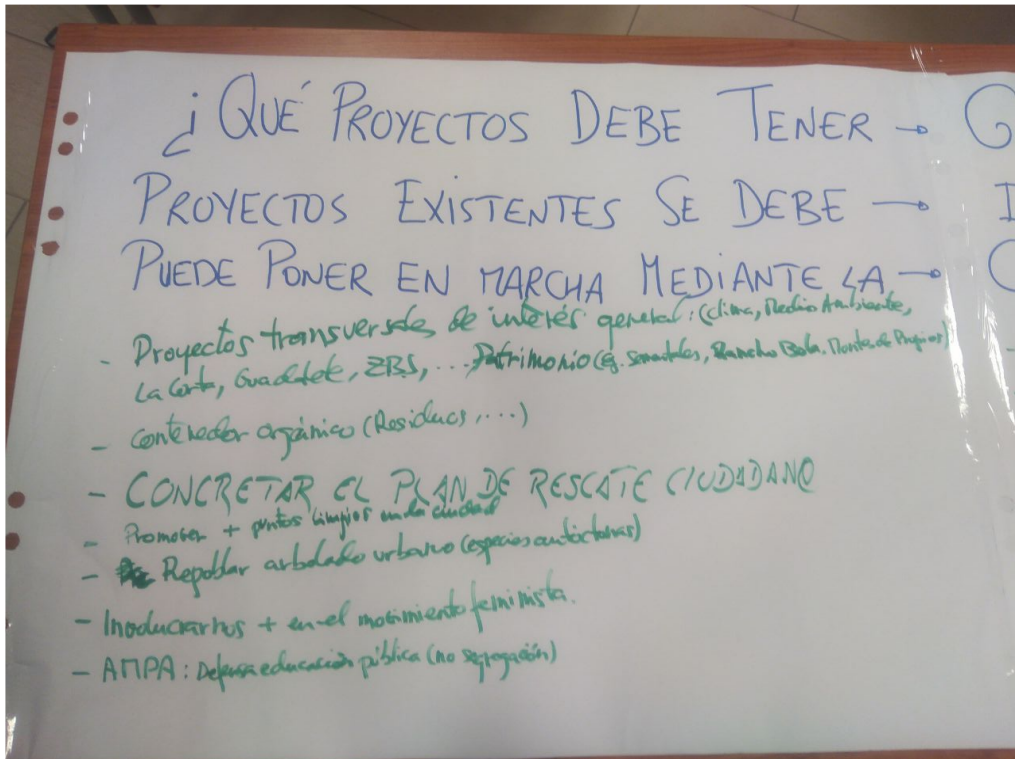 ¿QUÉ PROYECTOS DEBE TENER → G
PROYECTOS EXISTENTES SE DEBE → I
PUEDE PONER EN MARCHA MEDIANTE LA → C
- Proyectos transversales de interés general: (clima, Medio Ambiente,
La Corta, Guadalete, ZBS, ... Patrimonio (ej. Rancho Bola, Montes de Propios)
- contenedor orgánico (Residuos, ....)
- CONCRETAR EL PLAN DE RESCATE CIUDADAN@
- Promover + puntos limpios en la ciudad
- Repoblar arbolado urbano (especies autóctonas)
- + en el movimiento feminista.
- AMPA: Defensa educación pública (no segregación)